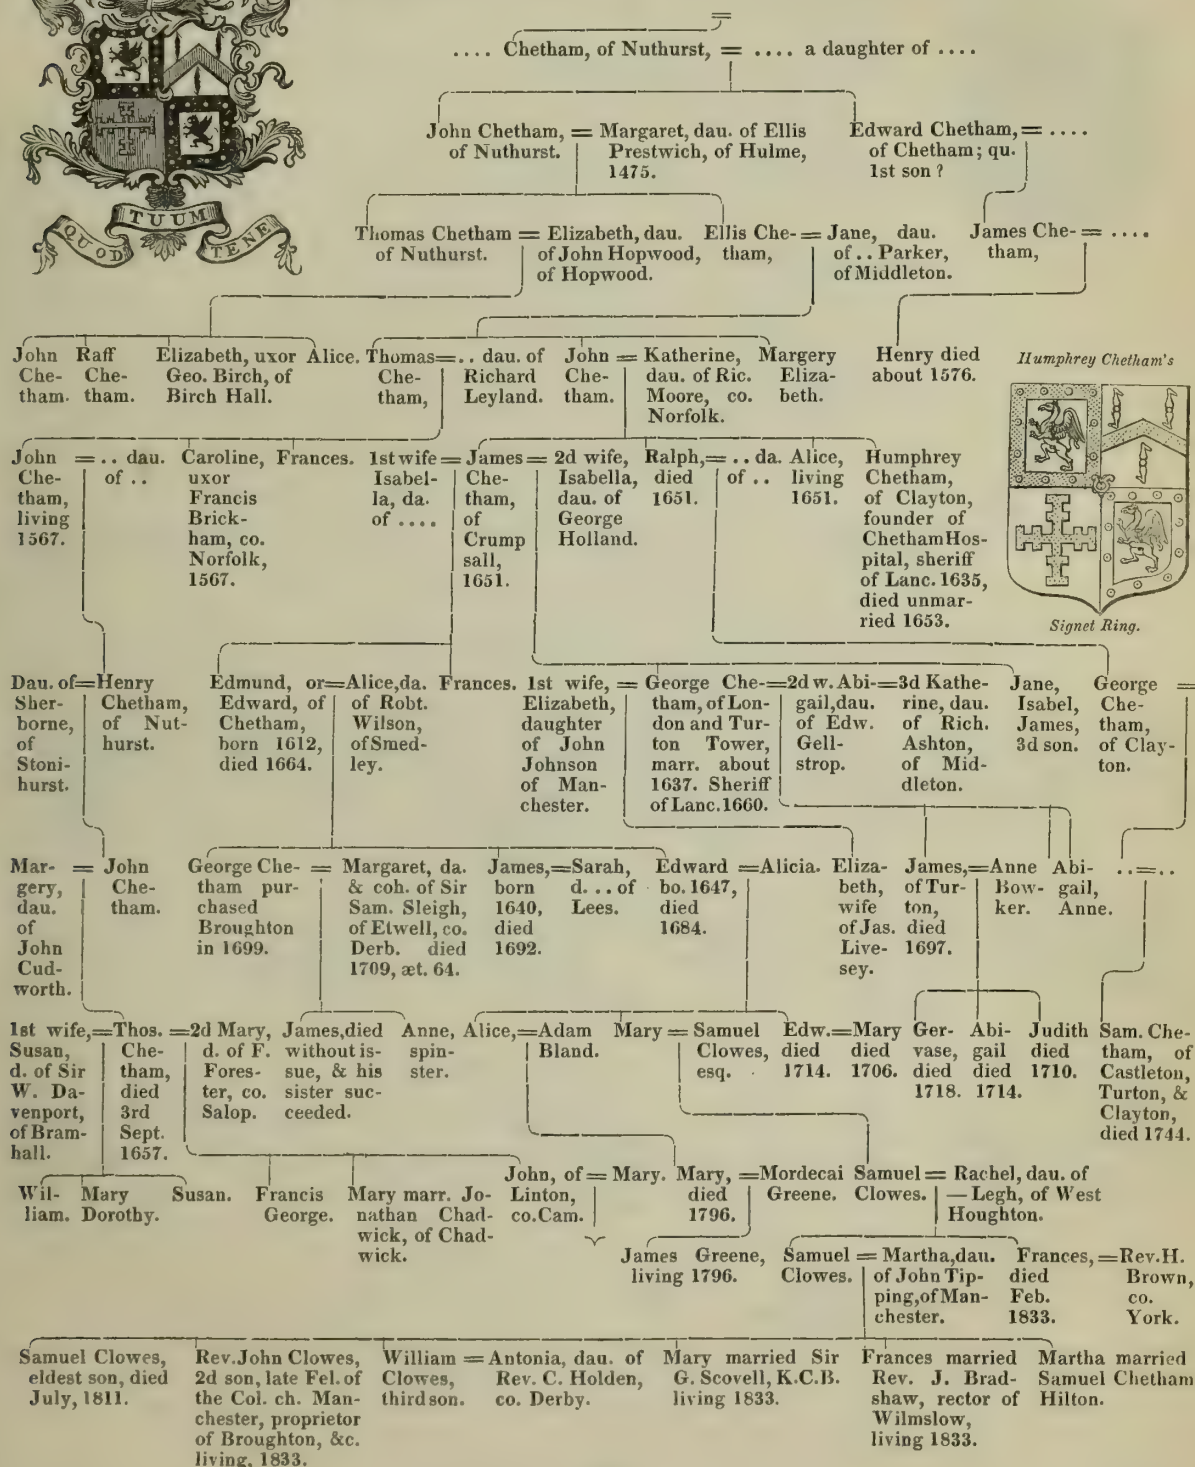 QUOD TUUM TENE
.... Chetham, of Nuthurst, = .... a daughter of ....
John Chetham, =
of Nuthurst.
Margaret, dau. of Ellis
Prestwich, of Hulme,
1475.
Edward Chetham, = ....
of Chetham; qu.
1st son?
Thomas Chetham =
of Nuthurst.
Elizabeth, dau.
of John Hopwood,
of Hopwood.
Ellis Che- =
tham,
Jane, dau.
of .. Parker,
of Middleton.
James Che- = ....
tham,
John
Che-
tham.
Raff
Che-
tham.
Elizabeth, uxor
Geo. Birch, of
Birch Hall.
Alice.
Thomas =
Che-
tham,
.. dau. of
Richard
Leyland.
John =
Che-
tham.
Katherine,
dau. of Ric.
Moore, co.
Norfolk.
Margery
Eliza-
beth.
Henry died
about 1576.
Humphrey Chetham's
Signet Ring.
John =
Che-
tham,
living
1567.
.. dau.
of ..
Caroline,
uxor
Francis
Brick-
ham, co.
Norfolk,
1567.
Frances.
1st wife =
Isabel-
la, da.
of ....
James =
Che-
tham,
of
Crump
sall,
1651.
2d wife,
Isabella,
dau. of
George
Holland.
Ralph, =
died
1651.
.. da.
of ..
Alice,
living
1651.
Humphrey
Chetham,
of Clayton,
founder of
Chetham Hos-
pital, sheriff
of Lanc. 1635,
died unmar-
ried 1653.
Dau. of =
Sher-
borne,
of
Stoni-
hurst.
Henry
Chetham,
of Nut-
hurst.
Edmund, or =
Edward, of
Chetham,
born 1612,
died 1664.
Alice, da.
of Robt.
Wilson,
of Smed-
ley.
Frances.
1st wife, =
Elizabeth,
daughter
of John
Johnson
of Man-
chester.
George Che- =
tham, of Lon-
don and Tur-
ton Tower,
marr. about
1637. Sheriff
of Lanc. 1660.
2d w. Abi- =
gail, dau.
of Edw.
Gell-
strop.
3d Kathe-
rine, dau.
of Rich.
Ashton,
of Mid-
dleton.
Jane,
Isabel,
James,
3d son.
George =
Che-
tham,
of Clay-
ton.
Mar- =
gery,
dau.
of
John
Cud-
worth.
John
Che-
tham.
George Che- =
tham pur-
chased
Broughton
in 1699.
Margaret, da.
& coh. of Sir
Sam. Sleigh,
of Etwell, co.
Derb. died
1709, æt. 64.
James, =
born
1640,
died
1692.
Sarah,
d. .. of
Lees.
Edward =
bo. 1647,
died
1684.
Alicia.
Eliza-
beth,
wife
of Jas.
Live-
sey.
James, =
of Tur-
ton,
died
1697.
Anne
Bow-
ker.
Abi-
gail,
Anne.
.. = ..
1st wife, =
Susan,
d. of Sir
W. Da-
venport,
of Bram-
hall.
Thos. =
Che-
tham,
died
3rd
Sept.
1657.
2d Mary,
d. of F.
Fores-
ter, co.
Salop.
James, died
without is-
sue, & his
sister suc-
ceeded.
Anne,
spin-
ster.
Alice, =
Adam
Bland.
Mary =
Samuel
Clowes,
esq.
Edw. =
died
1714.
Mary
died
1706.
Ger-
vase,
died
1718.
Abi-
gail
died
1714.
Judith
died
1710.
Sam. Che-
tham, of
Castleton,
Turton, &
Clayton,
died 1744.
Wil-
liam.
Mary
Dorothy.
Susan.
Francis
George.
Mary marr. Jo-
nathan Chad-
wick, of Chad-
wick.
John, of =
Linton,
co. Cam.
Mary.
Mary, =
died
1796.
Mordecai
Greene.
Samuel =
Clowes.
Rachel, dau. of
— Legh, of West
Houghton.
James Greene,
living 1796.
Samuel =
Clowes.
Martha, dau.
of John Tip-
ping, of Man-
chester.
Frances, =
died
Feb.
1833.
Rev. H.
Brown,
co.
York.
Samuel Clowes,
eldest son, died
July, 1811.
Rev. John Clowes,
2d son, late Fel. of
the Col. ch. Man-
chester, proprietor
of Broughton, &c.
living, 1833.
William =
Clowes,
third son.
Antonia, dau. of
Rev. C. Holden,
co. Derby.
Mary married Sir
G. Scovell, K.C.B.
living 1833.
Frances married
Rev. J. Brad-
shaw, rector of
Wilmslow,
living 1833.
Martha married
Samuel Chetham
Hilton.